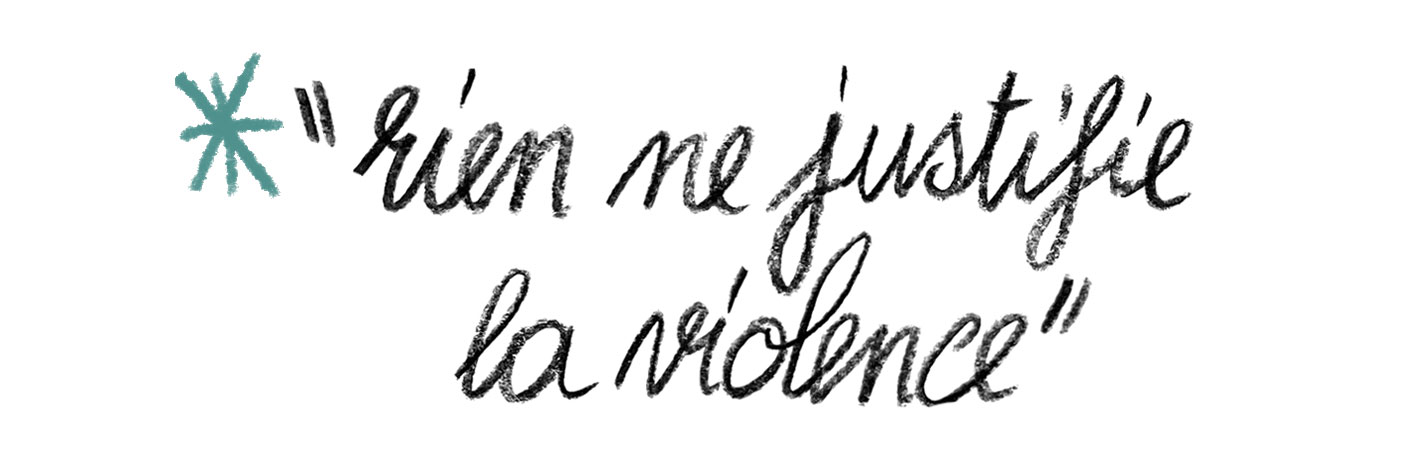 "rien ne justifie
la violence"